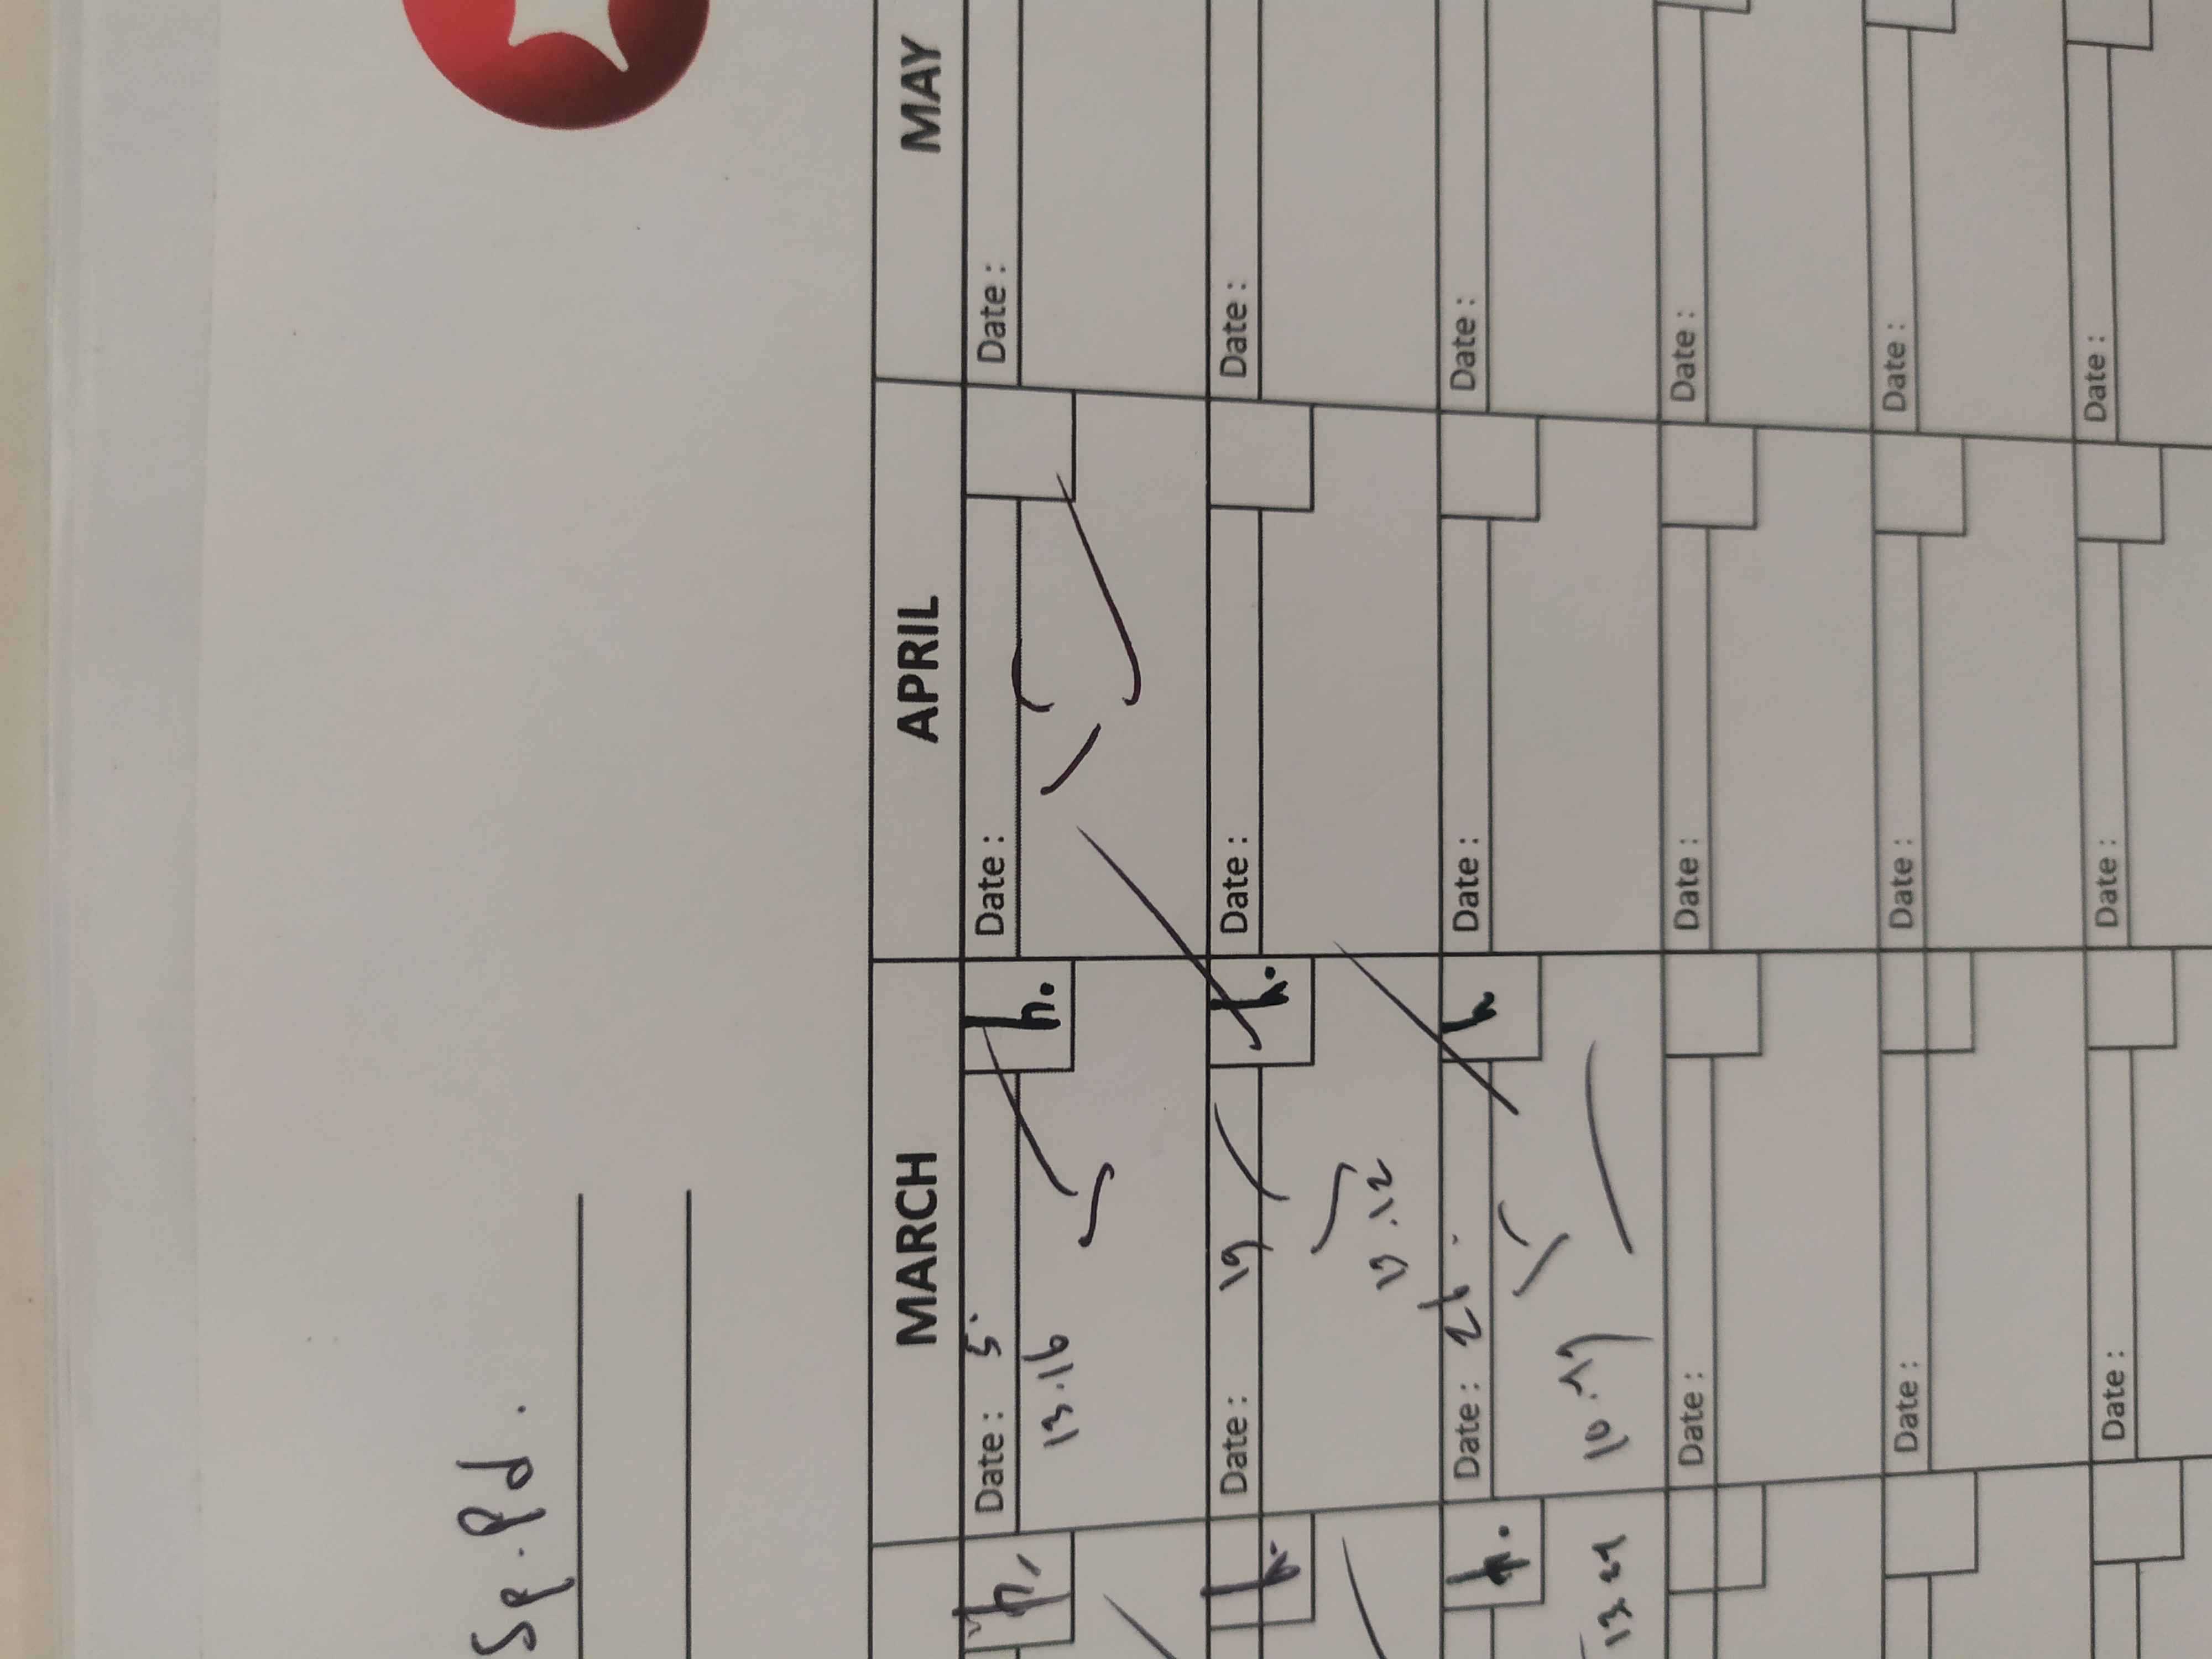 Sp.Pd.
MARCH APRIL MAY
h. Date : 5. h. Date : Date :
13.16
h. Date : 19 h. Date : Date :
13.12
h. Date : 26. h Date : Date :
13.21
Date : Date : Date :
Date : Date : Date :
Date : Date : Date :